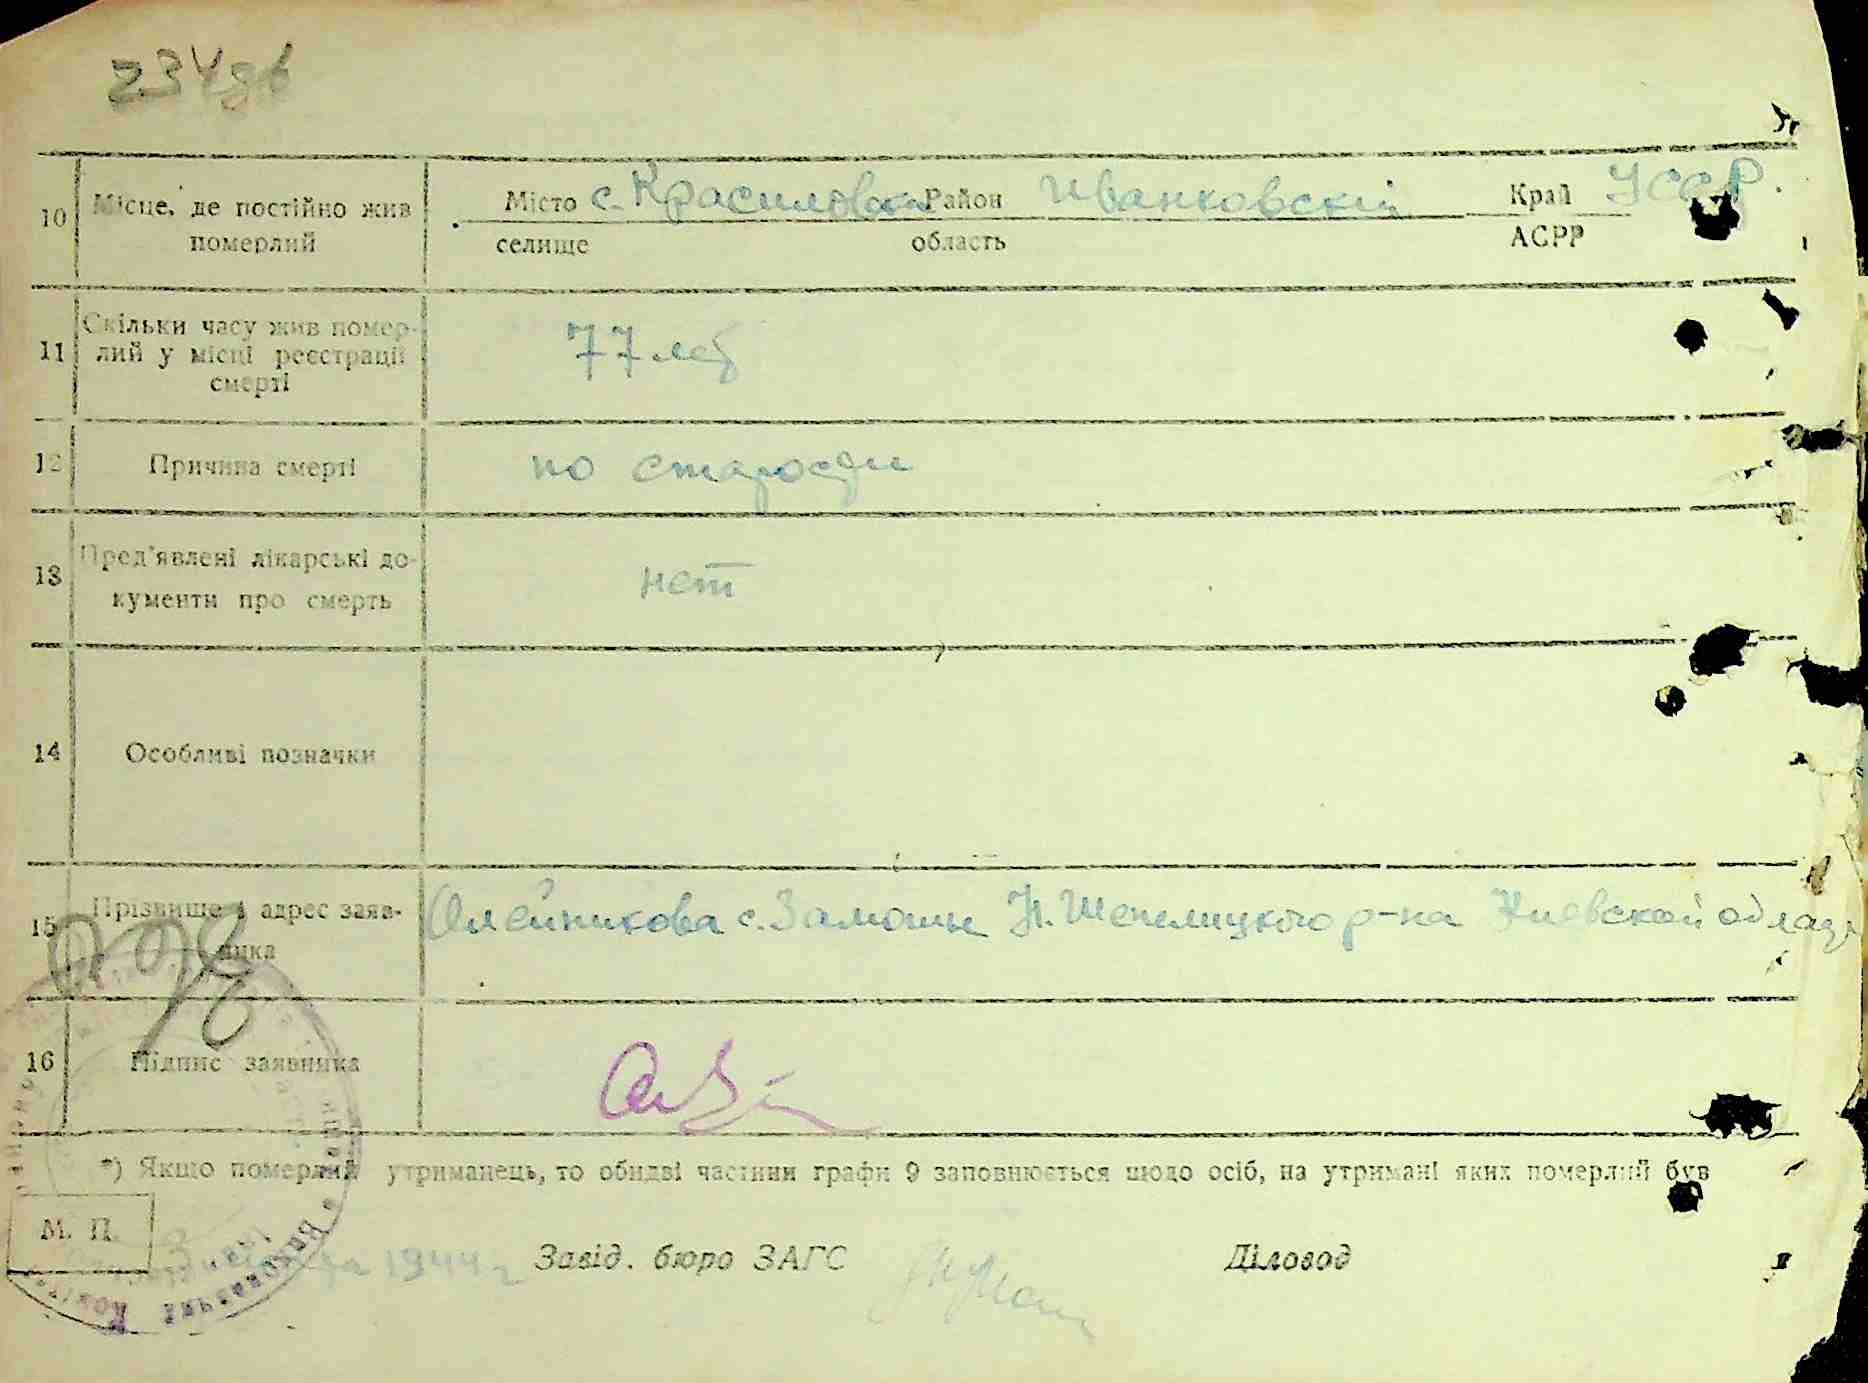 10 Місце, де постійно жив Місто с. Красиловка Район Иванковский Край УССР.
померлий селище область АСРР
11 Скільки часу жив помер-
лий у місці реєстрації 77 лет
смерті
12 Причина смерті по старости
13 Пред'явлені лікарські до-
кументи про смерть нет
14 Особливі позначки
15 Прізвище і адрес заяв- Олейникова с. Замошье Н. Шепелицкого р-на Киевской
ника
16 Підпис заявника
*) Якщо померлий утриманець, то обидві частини графи 9 заповнюється щодо осіб, на утримані яких померлий був
М. П.
1944 г Завід. бюро ЗАГС Діловод